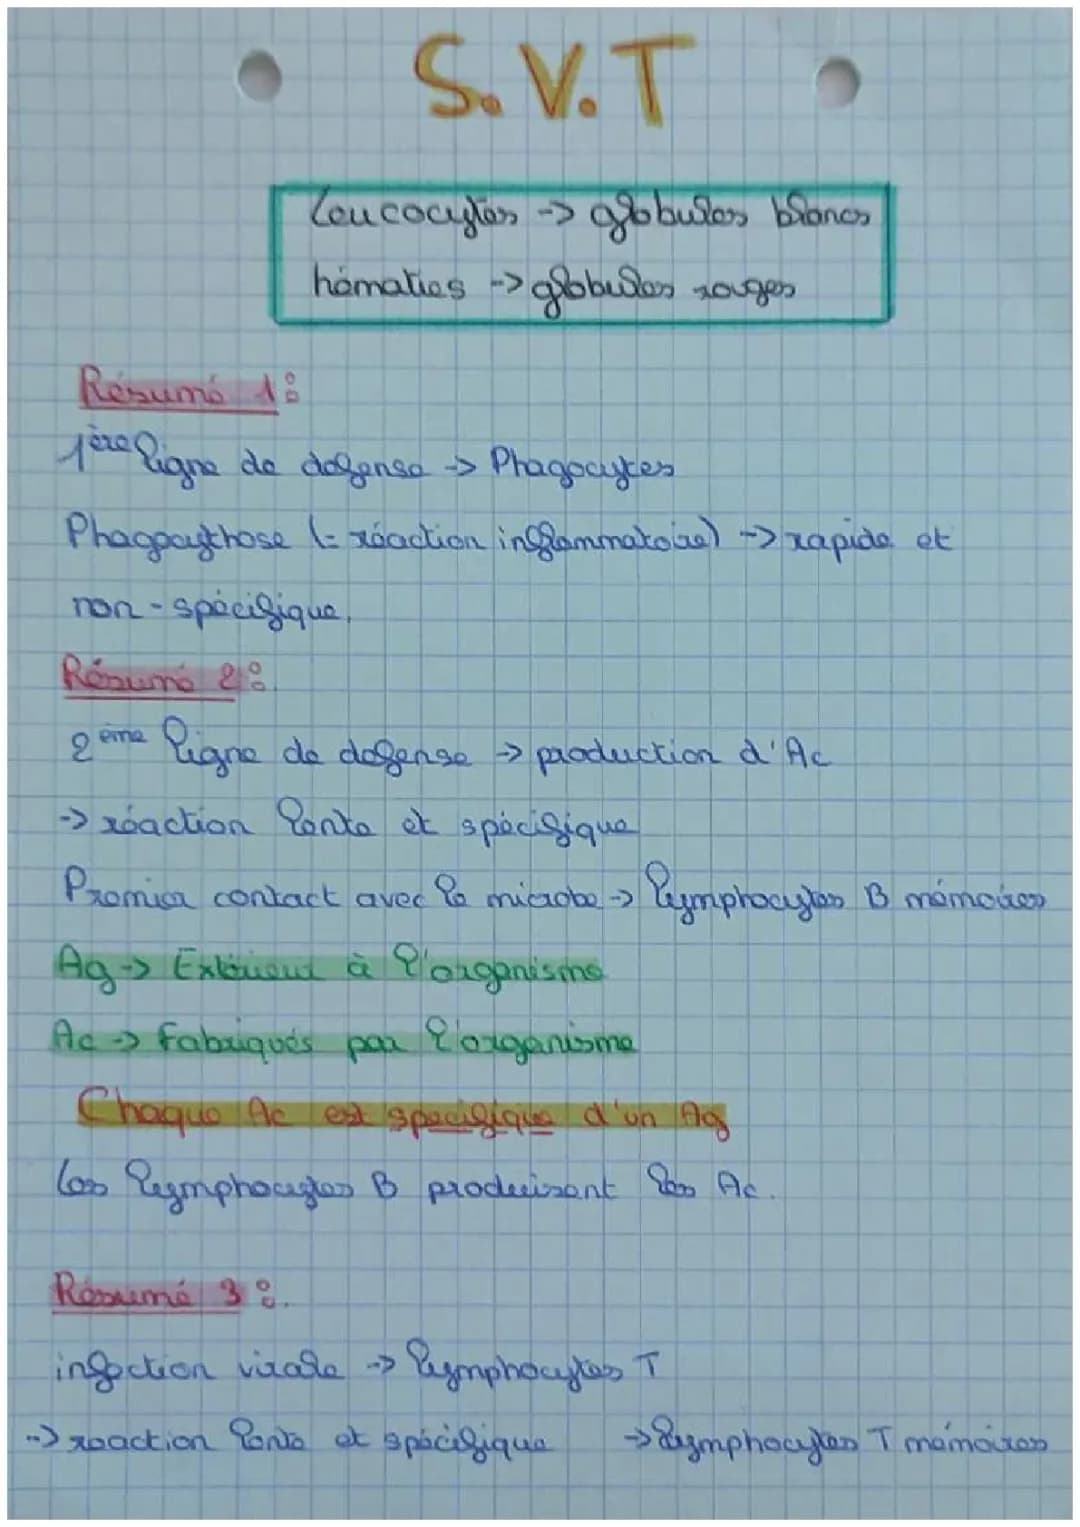 S.V.T
Leucocytes -> globules blancs
hématies -> globules rouges
Résumé 1:
1ère ligne de défense -> Phagocytes
Phagocythose (= réaction inflammatoire) -> rapide et
non-spécifique.
Résumé 2:
2ème ligne de défense -> production d'Ac
-> réaction lente et spécifique
Premier contact avec le microbe -> lymphocytes B mémoires
Ag -> Extérieur à l'organisme
Ac -> Fabriqués par l'organisme
Chaque Ac est specifique d'un Ag
Les lymphocytes B produisent les Ac.
Résumé 3:.
infection virale -> lymphocytes T
-> réaction lente et spécifique -> lymphocytes T mémoires